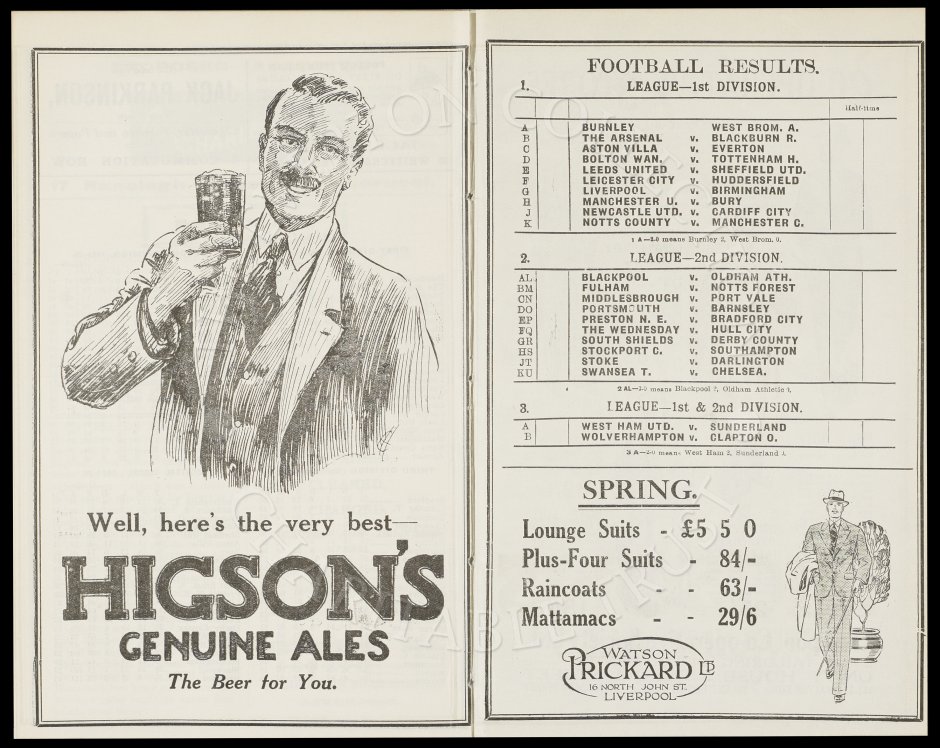 Well, here's the very best—
HIGSON'S
GENUINE ALES
The Beer for You.
FOOTBALL RESULTS.
1. LEAGUE—1st DIVISION.
Half-time
A BURNLEY v. WEST BROM. A.
B THE ARSENAL v. BLACKBURN R.
C ASTON VILLA v. EVERTON
D BOLTON WAN. v. TOTTENHAM H.
E LEEDS UNITED v. SHEFFIELD UTD.
F LEICESTER CITY v. HUDDERSFIELD
G LIVERPOOL v. BIRMINGHAM
H MANCHESTER U. v. BURY
J NEWCASTLE UTD. v. CARDIFF CITY
K NOTTS COUNTY v. MANCHESTER C.
1 A—2.0 means Burnley 2, West Brom. 0.
2. LEAGUE—2nd DIVISION.
AL BLACKPOOL v. OLDHAM ATH.
BM FULHAM v. NOTTS FOREST
CN MIDDLESBROUGH v. PORT VALE
DO PORTSMOUTH v. BARNSLEY
EP PRESTON N. E. v. BRADFORD CITY
FQ THE WEDNESDAY v. HULL CITY
GR SOUTH SHIELDS v. DERBY COUNTY
HS STOCKPORT C. v. SOUTHAMPTON
JT STOKE v. DARLINGTON
KU SWANSEA T. v. CHELSEA.
2 AL—2.0 means Blackpool 2, Oldham Athletic
3. LEAGUE—1st & 2nd DIVISION.
A WEST HAM UTD. v. SUNDERLAND
B WOLVERHAMPTON v. CLAPTON O.
3 A—2.0 means West Ham 2, Sunderland
SPRING.
Lounge Suits - £5 5 0
Plus-Four Suits - 84/-
Raincoats - - 63/-
Mattamacs - - 29/6
WATSON
PRICKARD LTD
16 NORTH JOHN ST.
LIVERPOOL